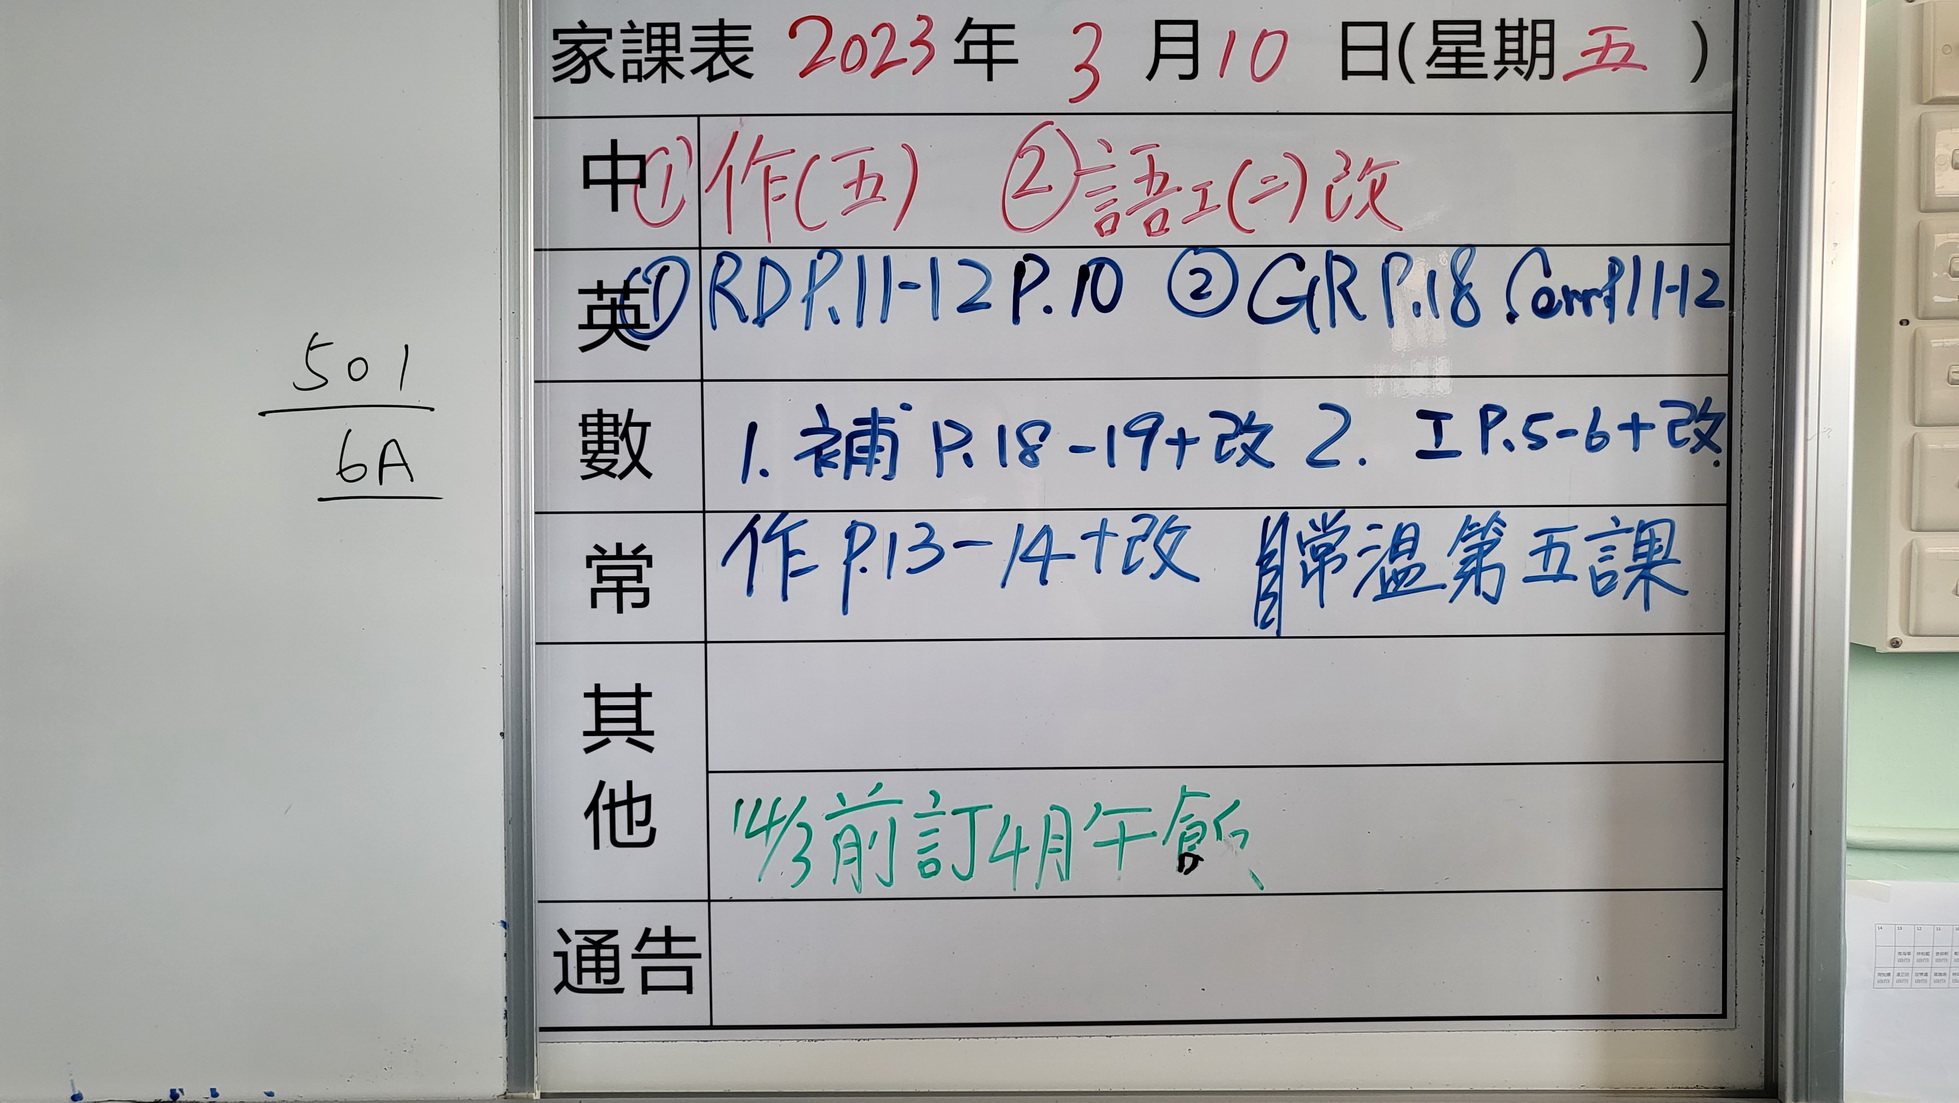 家課表 2023年 3月10日(星期五)
501
6A
中 ①作(五) ②語工(二)改
英 ①RD P.11-12 P.10 ②GR P.18 Corr P.11-12
數 1. 補 P.18-19+改 2. 工 P.5-6+改
常 作 P.13-14+改 常溫第五課
其他
14/3前訂4月午飯
通告